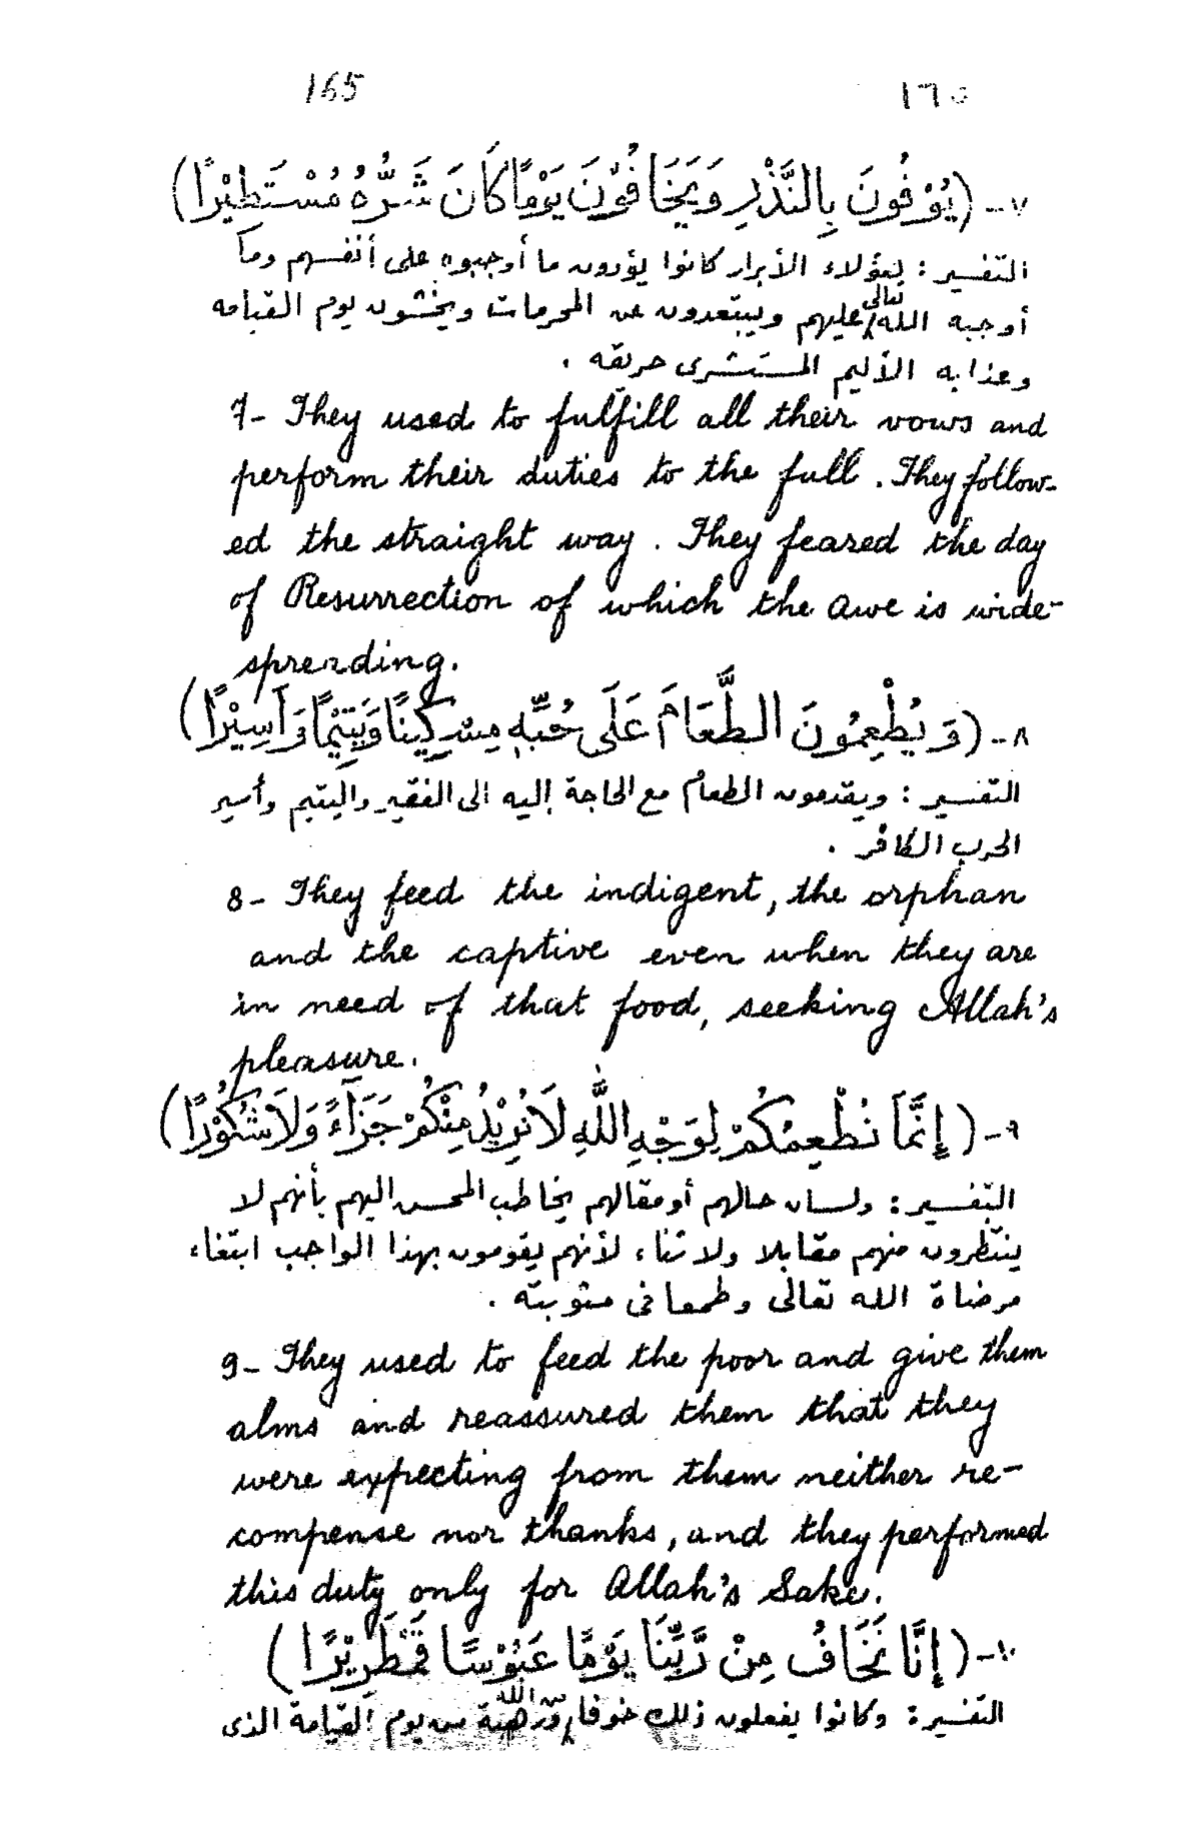 165 ١٦٥
٧- (يُوْفُونَ بِالنَّذْرِ وَيَخَافُوْنَ يَوْمًا كَانَ شَرُّهُ مُسْتَطِيْرًا)
التفسير : هؤلاء الأبرار كانوا يؤدون ما أوجبوه على أنفسهم وما
أوجبه الله تعالى عليهم ويبتعدون عن المحرمات ويخشون يوم القيامه
وعذابه الأليم المستشرى حريقه .
7- They used to fulfill all their vows and
perform their duties to the full . They follow-
ed the straight way . They feared the day
of Resurrection of which the awe is wide-
spreading.
٨- (وَيُطْعِمُونَ الطَّعَامَ عَلَى حُبِّهِ مِسْكِينًا وَيَتِيْمًا وَأَسِيْرًا)
التفسير : ويقدمون الطعام مع الحاجة إليه الى الفقير واليتيم وأسير
الحرب الكافر .
8- They feed the indigent, the orphan
and the captive even when they are
in need of that food, seeking Allah's
pleasure.
٩- (إِنَّمَا نُطْعِمُكُمْ لِوَجْهِ اللَّهِ لَا نُرِيْدُ مِنْكُمْ جَزَآءً وَلَا شُكُوْرًا)
التفسير : ولسان حالهم أو مقالهم يخاطب المحسن اليهم بأنهم لا
ينتظرون منهم مقابلا ولا ثناء ، لأنهم يقومون بهذا الواجب ابتغاء
مرضاة الله تعالى وطمعا فى مثوبته .
9- They used to feed the poor and give them
alms and reassured them that they
were expecting from them neither re-
compense nor thanks, and they performed
this duty only for Allah's Sake.
١٠- (إِنَّا نَخَافُ مِنْ رَّبِّنَا يَوْمًا عَبُوْسًا قَمْطَرِيْرًا)
التفسير : وكانوا يفعلون ذلك خوفا من الله ورهبة من يوم القيامة الذى